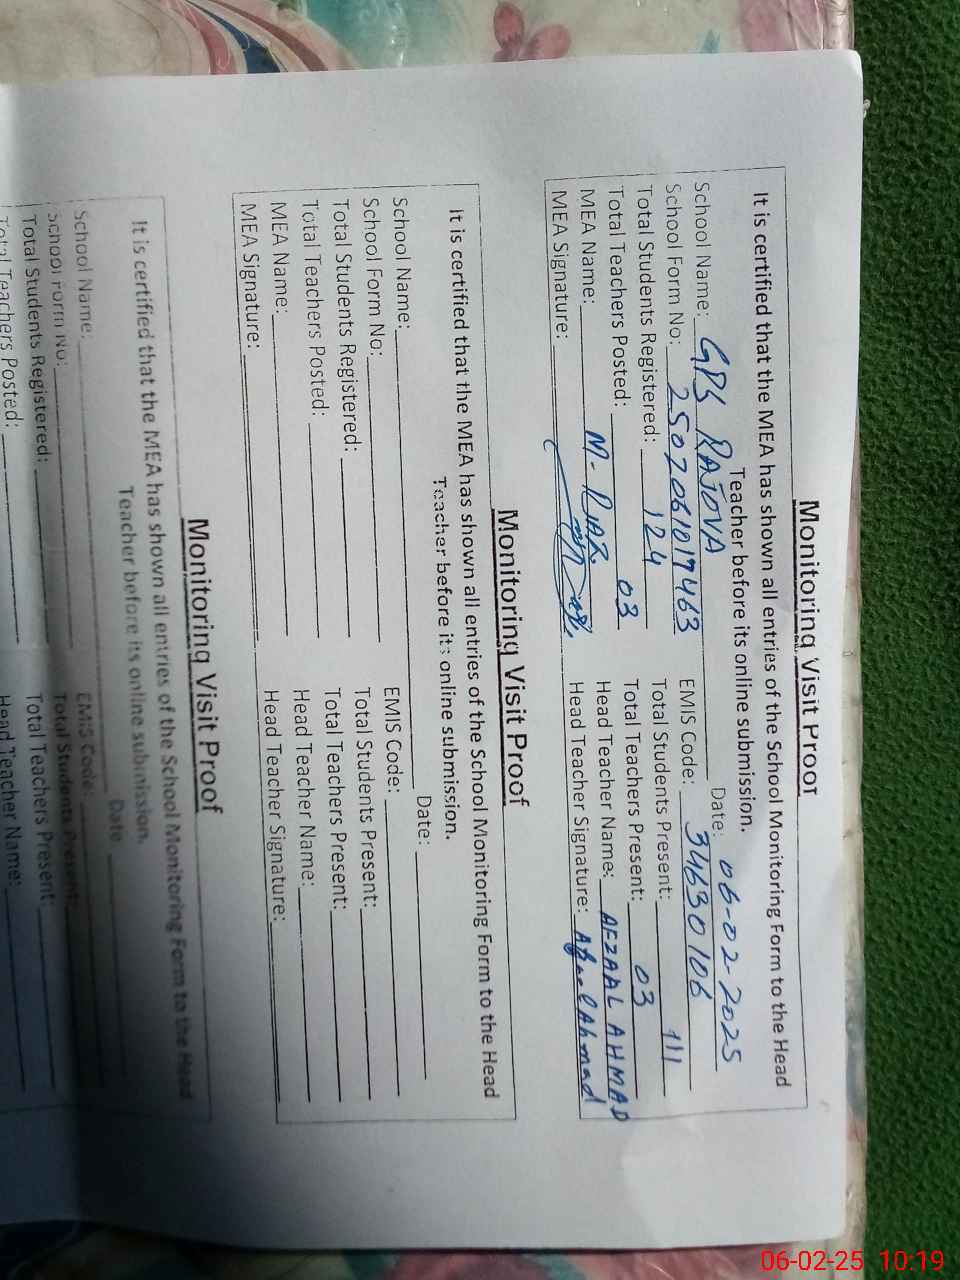 Monitoring Visit Proof
It is certified that the MEA has shown all entries of the School Monitoring Form to the Head
Teacher before its online submission.
Date: 06-02-2025
School Name: GPS RAJOVA
School Form No: 250206101 7463 EMIS Code: 34630106
Total Students Registered: 124 Total Students Present: 111
Total Teachers Posted: 03 Total Teachers Present: 03
MEA Name: M. RIAZ Head Teacher Name: AFZAAL AHMAD
MEA Signature: Head Teacher Signature: Afzaal Ahmad
Monitoring Visit Proof
It is certified that the MEA has shown all entries of the School Monitoring Form to the Head
Teacher before its online submission.
Date:
School Name:
School Form No: EMIS Code:
Total Students Registered: Total Students Present:
Total Teachers Posted: Total Teachers Present:
MEA Name: Head Teacher Name:
MEA Signature: Head Teacher Signature:
Monitoring Visit Proof
It is certified that the MEA has shown all entries of the School Monitoring Form to the Head
Teacher before its online submission.
Date
School Name:
School Form No: EMIS Code:
Total Students Registered: Total Students Present:
Total Teachers Posted: Total Teachers Present:
Head Teacher Name:
06-02-25 10:19